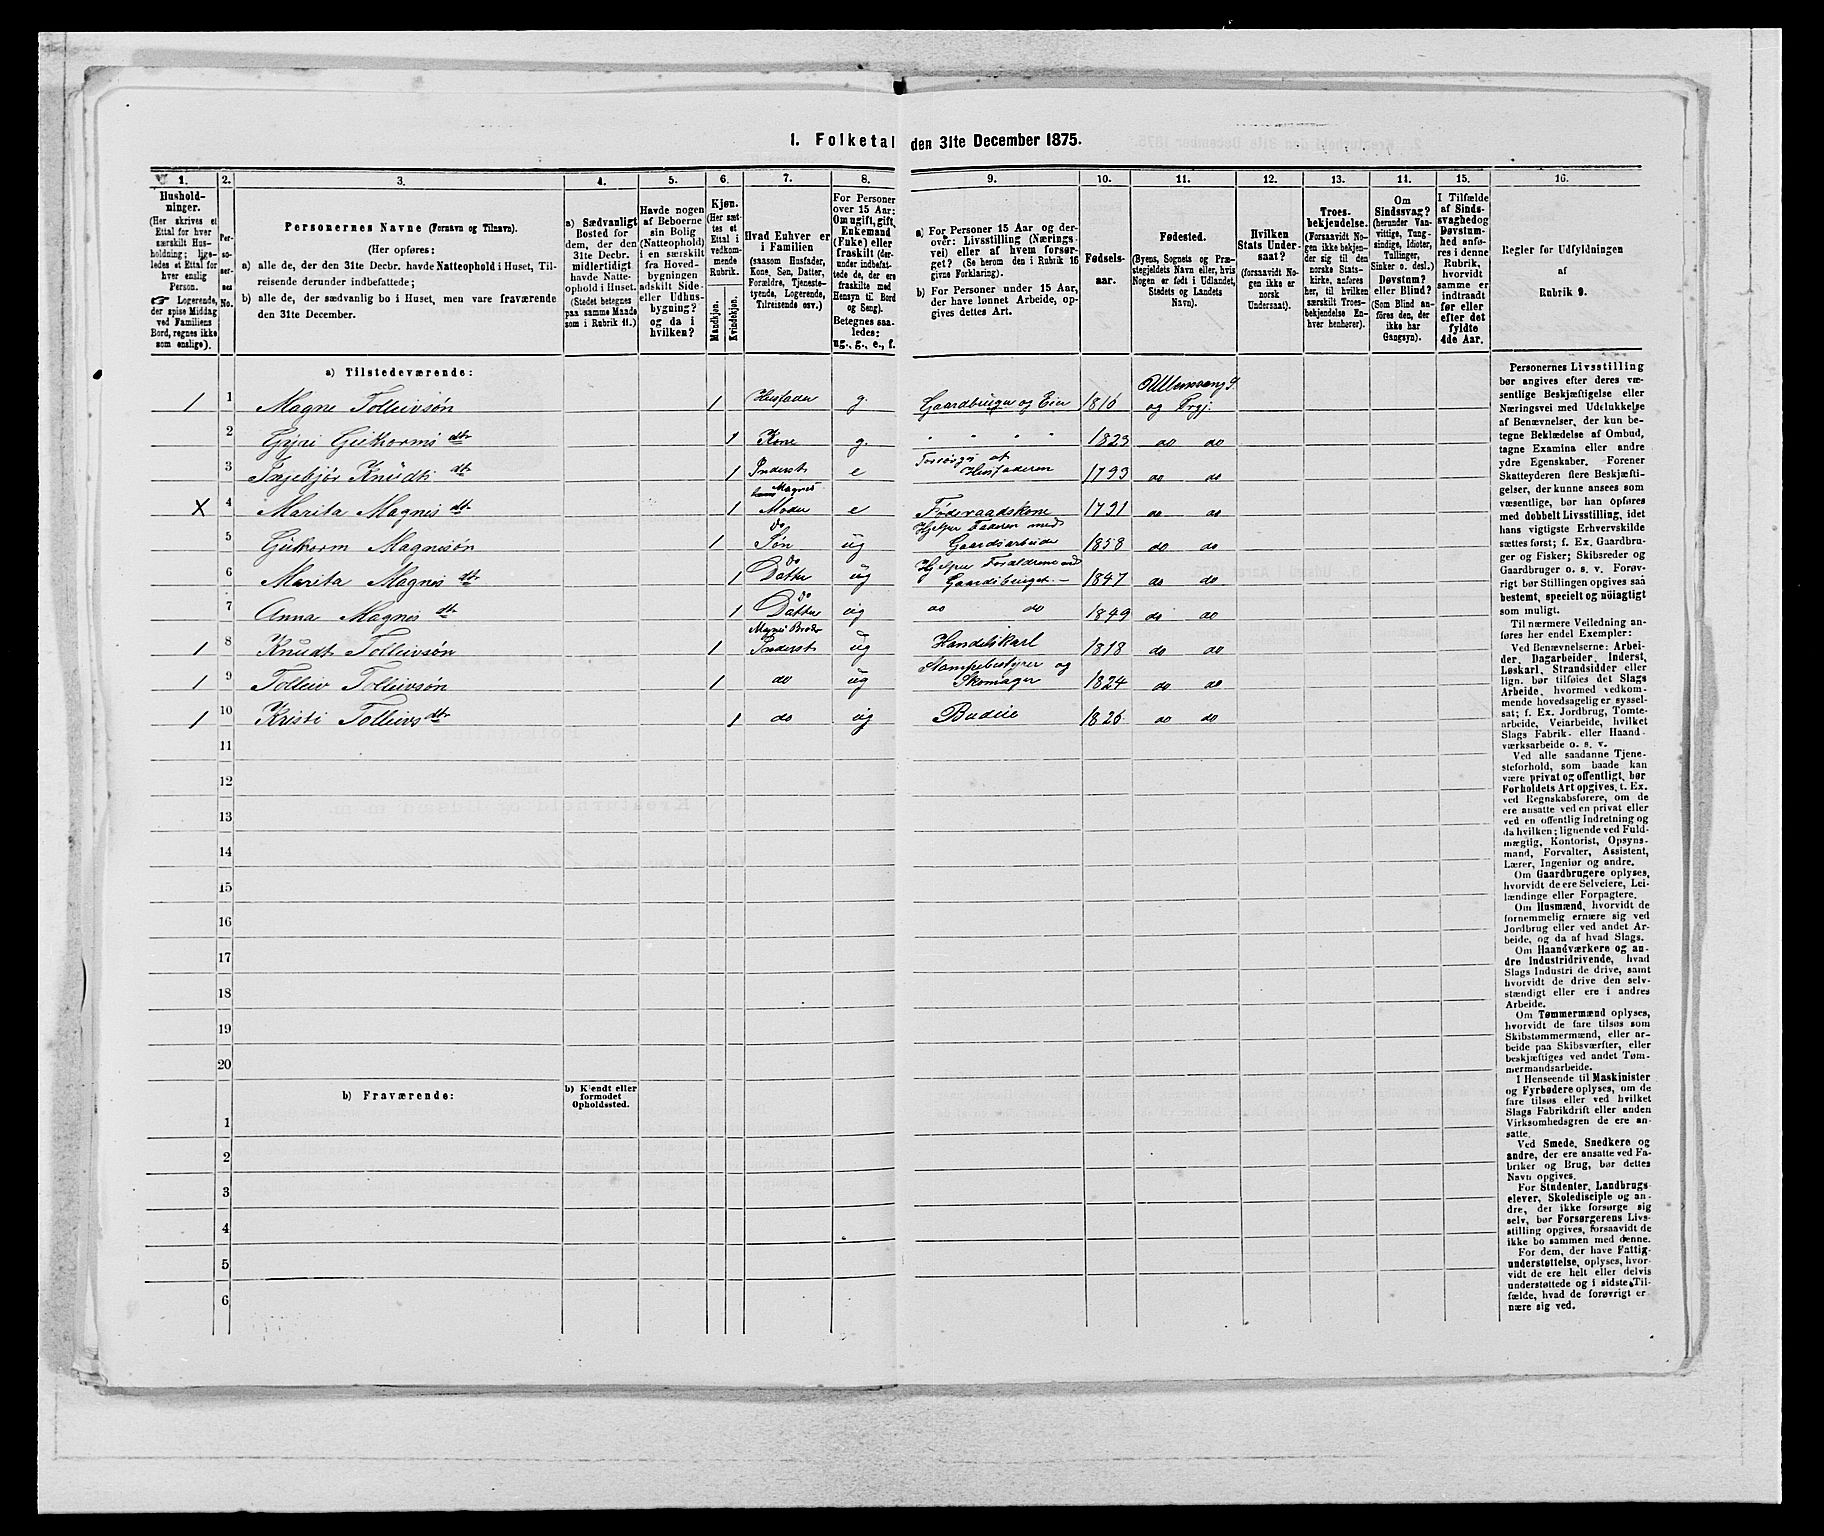 1. Folketal den 31te December 1875.
1. 2. 3. 4. 5. 6. 7. 8. 9. 10. 11. 12. 13. 14. 15. 16.
Husholdninger.
(Her skrives et
Ettal for hver
særskilt Husholdning;
ligeledes et Ettal for
hver enslig
Person.
☞ Logerende,
der spise Middag
ved Familiens
Bord, regnes ikke
som enslige).
Personernes No.
Personernes Navne (Fornavn og Tilnavn).
(Her opføres:
a) alle de, der den 31te Decbr. havde Natteophold i Huset, Tilreisende derunder indbefattede;
b) alle de, der sædvanlig bo i Huset, men vare fraværende
den 31te December.
a) Sædvanligt
Bosted for
dem, der den
31te Decbr.
midlertidigt
havde Natteophold
i Huset.
(Stedet betegnes
paa samme Maade
som i Rubrik 11.)
Havde nogen
af Beboerne
sin Bolig
(Natteophold)
i en særskilt
fra Hovedbygningen
adskilt Side-
eller Udhusbygning?
og da i
hvilken?
Kjøn.
(Her sættes et
Ettal i
vedkommende
Rubrik.
Mandkjøn.
Kvindekjøn.
Hvad Enhver er
i Familien
(saasom Husfader,
Kone, Søn, Datter,
Forældre, Tjenestetyende,
Logerende,
Tilreisende osv.)
For Personer
over 15 Aar:
Om ugift, gift,
Enkemand
(Enke) eller
fraskilt (derunder
indbefattede de, der ere
fraskilte med
Hensyn til Bord
og Seng).
Betegnes saaledes:
ug., g., e., f.
a) For Personer 15 Aar og derover:
Livsstilling (Næringsvei)
eller af hvem forsørget?
(Se herom den i Rubrik 16
givne Forklaring).
b) For Personer under 15 Aar,
der have lønnet Arbeide, opgives
dettes Art.
Fødselsaar.
Fødested.
(Byens, Sognets og Præstegjeldets
Navn eller, hvis
Nogen er født i Udlandet,
Stedets og Landets
Navn).
Hvilken
Stats Undersaat?
(forsaavidt Nogen
ikke er
norsk
Undersaat).
Troesbekjendelse.
(Forsaavidt Nogen
ikke bekjender
sig til den
norske Statskirke,
anføres
her, til hvilken
særskilt Troesbekjendelse
Enhver henhører).
Om
Sindssvag?
(herunder Vanvittige,
Tungsindige, Idioter,
Tullinger,
Sinker o. desl.)
Døvstum?
eller Blind?
(Som Blind anføres
den, der
ikke har
Gangsyn).
I Tilfælde
af Sindssvaghed og
Døvstumhed
anføres
i denne
Rubrik,
hvorvidt
samme er
indtraadt
før eller
efter det
fyldte
4de Aar.
Regler for Udfyldningen
af
Rubrik 9.
a) Tilstedeværende:
Ullensvang S.
1 1 Magne Tolleivsøn 1 Husfader g. Gaardbruger og Eier 1816 og Prgj.
2 Gyri Guthorms dtr 1 Kone g. " " " " 1823 do do
3 Ingebjør Knudts dtr 1 Inderst e Forsørges af Husfaderen 1793 do do
X 4 Marita Magnes dtr 1 Magnes Moder e Føderaadskone 1791 do do
5 Guthorm Magnesøn 1 do Søn ug Hjelper Faderen med Gaardsarbeide 1858 do do
6 Marita Magnes dtr 1 do Datter ug Hjelper Forældrene ved Gaardsbruget 1847 do do
7 Anna Magnes dtr 1 do Datter ug do do 1849 do do
1 8 Knudt Tolleivsøn 1 Magnes Broder Inderst ug Handelskarl 1818 do do
1 9 Tolleiv Tolleivsøn 1 do ug Stampebestyrer og Skomager 1824 do do
1 10 Kristi Tolleivs dtr 1 do ug Budeie 1826 do do
11
12
13
14
15
16
17
18
19
20
b) Fraværende:
b) Kjendt eller
formodet
Opholdssted.
1
2
3
4
5
6
Personernes Livsstilling
bør angives efter deres væsentlige
Beskjæftigelse eller
Næringsvei med Udelukkelse
af Benævnelser, der kun betegne
Beklædelse af Ombud,
tagne Examina eller andre
ydre Egenskaber. Forener
Skatteyderen flere Beskjæftigelser,
der kunne ansees som
væsentlige, bør han opføres
med dobbelt Livsstilling, idet
hans vigtigste Erhvervskilde
sættes først; f. Ex. Gaardbruger
og Fisker; Skibsreder og
Gaardbruger o. s. v. Forøvrigt
bør Stillingen opgives saa
bestemt, specielt og nöiagtigt
som muligt.
Til nærmere Veiledning anføres
her endel Exempler:
Ved Benævnelserne: Arbeider,
Dagarbeider, Inderst,
Løskarl, Strandsidder eller
lign. bør tilføies det Slags
Arbeide, hvormed vedkommende
hovedsagelig er sysselsat;
f. Ex. Jordbrug, Tomtearbeide,
Veiarbeide, hvilket
Slags Fabrik- eller Haandværksarbeide
o. s. v.
Ved alle saadanne Tjenesteforhold,
som baade kan
være privat og offentligt, bør
Forholdets Art opgives, t. Ex.
ved Regnskabsførere, om de
ere ansatte ved en privat eller
ved en offentlig Indretning og
da hvilken; lignende ved Fuldmægtig,
Kontorist, Opsynsmand,
Forvalter, Assistent,
Lærer, Ingeniør og andre.
Om Gaardbrugere oplyses,
hvorvidt de ere Selveiere, Leilændinge
eller Forpagtere.
Om Husmænd, hvorvidt de
fornemmelig ernære sig ved
Jordbrug eller ved andet Arbeide,
og da af hvad Slags.
Om Haandværkere og andre
Industridrivende, hvad
Slags Industri de drive, samt
hvorvidt de drive den selvstændigt
eller ere i andres
Arbeide.
Om Tømmermænd oplyses,
hvorvidt de fare tilsøs som
Skibstømmermænd, eller arbeide
paa Skibsværfter, eller
beskjæftiges ved andet Tømmermandsarbeide.
I Henseende til Maskinister
og Fyrbødere oplyses, om de
fare tilsøs eller ved hvilket
Slags Fabrikdrift eller anden
Virksomhedsgren de ere ansatte.
Ved Smede, Snedkere og
andre, der ere ansatte ved Fabriker
og Brug, bør dettes
Navn opgives.
For Studenter, Landbrugselever,
Skoledisciple og andre,
der ikke forsørge sig
selv, bør Forsørgerens Livsstilling
opgives, forsaavidt de
ikke bo sammen med denne.
For dem, der have Fattigunderstøttelse,
oplyses, hvorvidt
de ere helt eller delvis
understøttede og i sidste Tilfælde,
hvad de forøvrigt ernære
sig ved.